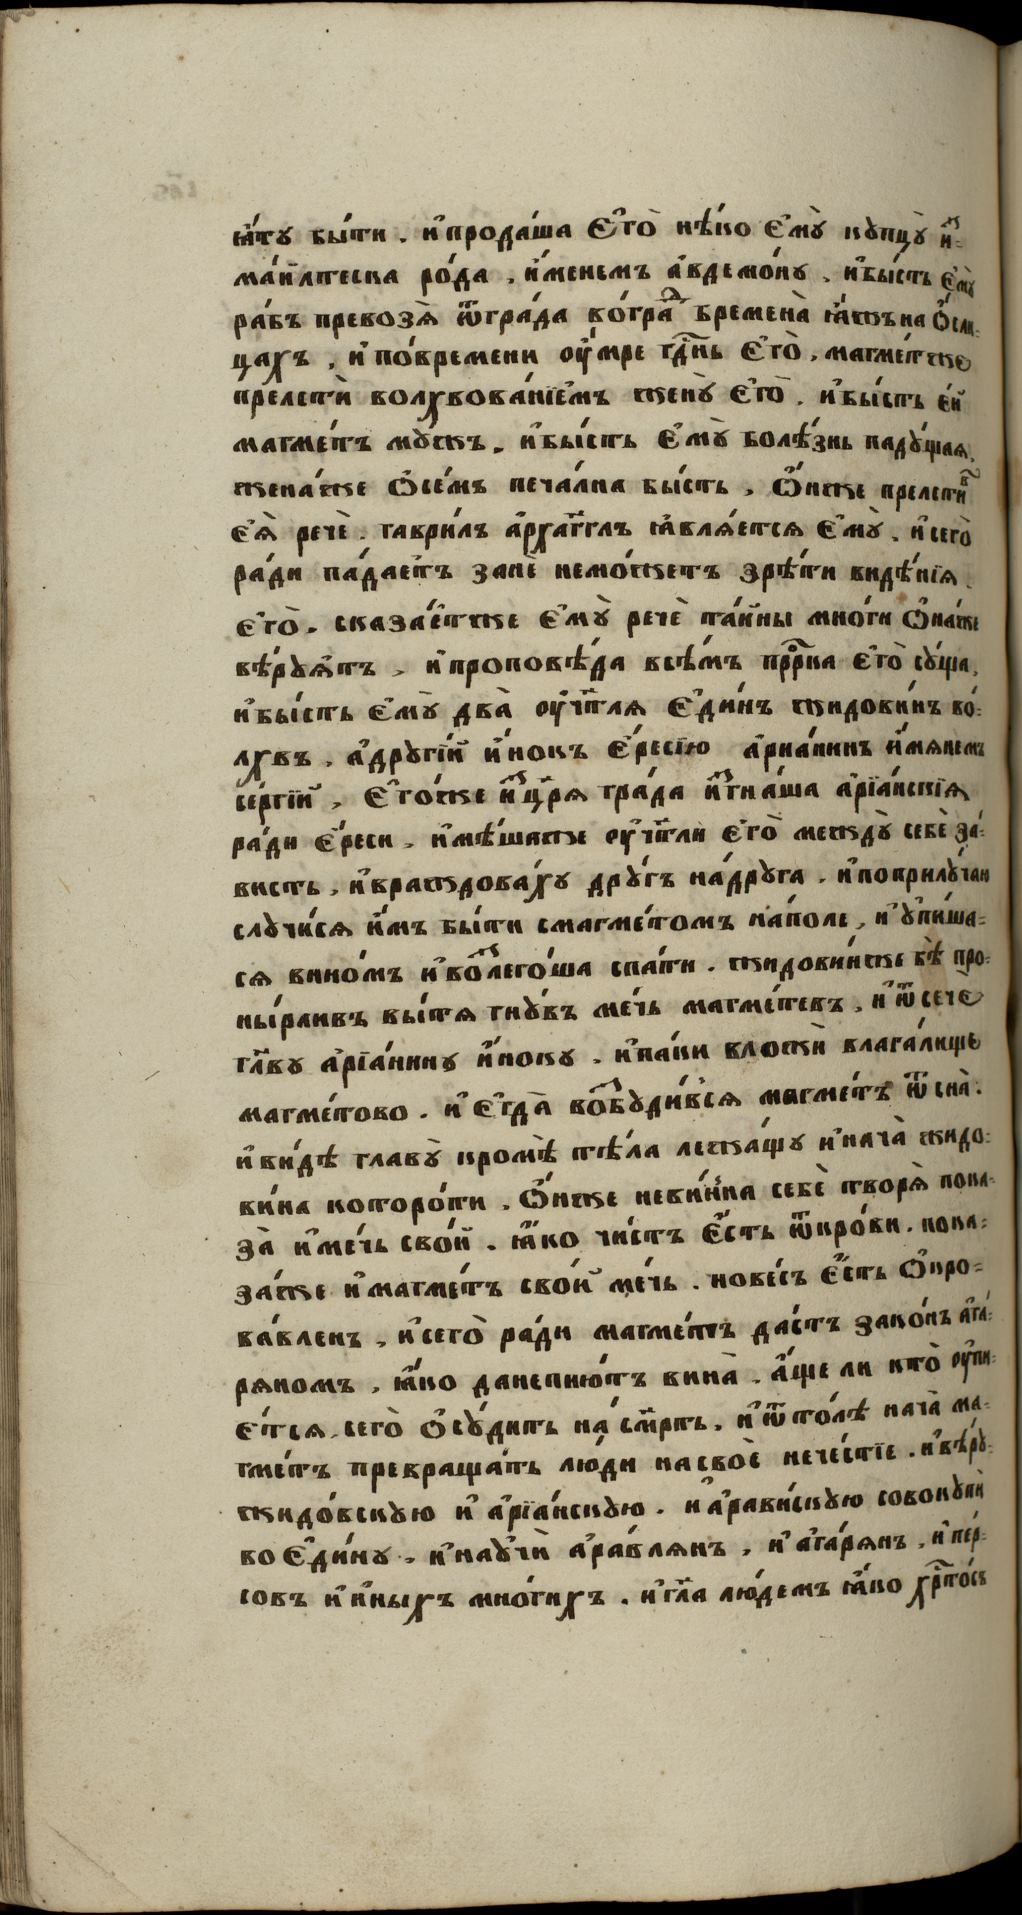 ꙗ́ту бы́ти . и҆прода́ша Є҆го̀ нѣ́ко Є҆мꙋ̀ кꙋпцꙋ̀ и҆з=
ма́ил̾теска ро́да , и҆́менемъ а҆вдемо́нꙋ , и҆бы́сть Є҆мꙋ̀
ра́бъ превозѧ̀ ѿгра́да во́гра бремена̀ ꙗ҆́жъ на Ѻ҆сли=
цахъ , и҆ по́времени оу҆́мре гдⷭ҇нь Є҆го̀ , магме́тже
прелстѝ волхвова́нїемъ женꙋ̀ Є҆го̀ . и҆бы́сть є҆́й
магме́тъ мꙋ́жъ . и҆бы́сть Є҆мꙋ̀ болѣ́знь падꙋ́щаѧ ,
жена́же Ѻ҆се́мъ печа́лна бы́сть , Ѻ҆́нже прелсти́в
є҆ѧ̀ речѐ . гаври́лъ а҆рха́гг҃лъ ꙗ҆влѧ́етсѧ Є҆мꙋ̀ . и҆сего̀
ра́ди па́даетъ занѐ немо́жетъ зрѣ́ти видѣ́нїѧ
Є҆го̀ . сказа́етже Є҆мꙋ̀ речѐ та́йны мно́ги Ѻ҆на́же
вѣ́рꙋѧтъ , и҆проповѣ́да всѣ́мъ прⷪ҇рка є҆го̀ сꙋ́ща ,
и҆бы́сть Є҆мꙋ̀ два̀ оу҆чт҃лѧ Є҆ди́нъ жидови́нъ во=
лхвъ , а҆дрꙋгі́й и҆́нокъ Є҆́ресїю а҆риа́нинъ и҆́мѧнемъ
се́ргїй , Є҆го́же и҆з̾цр҃ѧ гра́да и҆згна́ша а҆рїа́нскїѧ
ра́ди Є҆́реси , и҆мѣ́шаже оу҆чт҃ли Є҆го̀ междꙋ̀ себѐ за́=
висть , и҆враждова́хꙋ дрꙋ́гъ на́дрꙋга . и҆поприлꙋ́чаи
слꙋчи́сѧ и҆́мъ бы́ти смагме́томъ на́поле , и҆ ꙋ҆пи́ша=
сѧ вино́мъ и҆возлего́ша спа́ти . жидови́нже бѣ̀ про=
ны́рливъ вы́тѧгнꙋвъ ме́чь магме́тевъ , и҆ѿсече
гл҃вꙋ а҆рїа́нинꙋ и҆́нокꙋ . и҆па́ки вложѝ влага́лище
магме́тово . и҆ Є҆гда̀ возбꙋди́всѧ магме́тъ ѿ сна̀ .
и҆ви́дѣ главꙋ̀ кромѣ̀ тѣ́ла лежа́щꙋ и҆нача̀ жидо=
ви́на которо́ти , Ѻ҆́нже неви́нна себѐ творѧ̀ пока=
за̀ и҆ме́чь сво́й . ꙗ҆́ко чи́стъ Є҆́сть ѿкро́ви . пока=
за́же и҆магме́тъ сво́й ме́чь . но ве́съ Є҆́сть Ѻ҆кро=
ва́вленъ , и҆сего̀ ра́ди магме́тъ да́стъ зако́нъ а҆га=
рѧномъ , ꙗ҆́ко данепию́тъ вина̀ . а҆́ще ли кто̀ оу҆пи=
є́тсѧ , сего̀ Ѻ҆сꙋ́дитъ на́ смр҃ть . и҆ ѿто́лѣ нача̀ ма=
гме́тъ превраща́ть лю́ди на своѐ нече́стїе . и҆вѣ́рꙋ=
жидо́вскꙋю и҆ а҆рїа́нскꙋю . и҆ а҆рави́скꙋю совокꙋпѝ
во Є҆ди́нꙋ . и҆наꙋчѝ а҆ра́влѧнъ , и҆ а҆га́рѧнъ , и҆ пе́р=
совъ и҆ и҆ны́хъ мно́гихъ . и҆ гл҃а лю́демъ ꙗ҆́ко хрⷭ҇то́съ